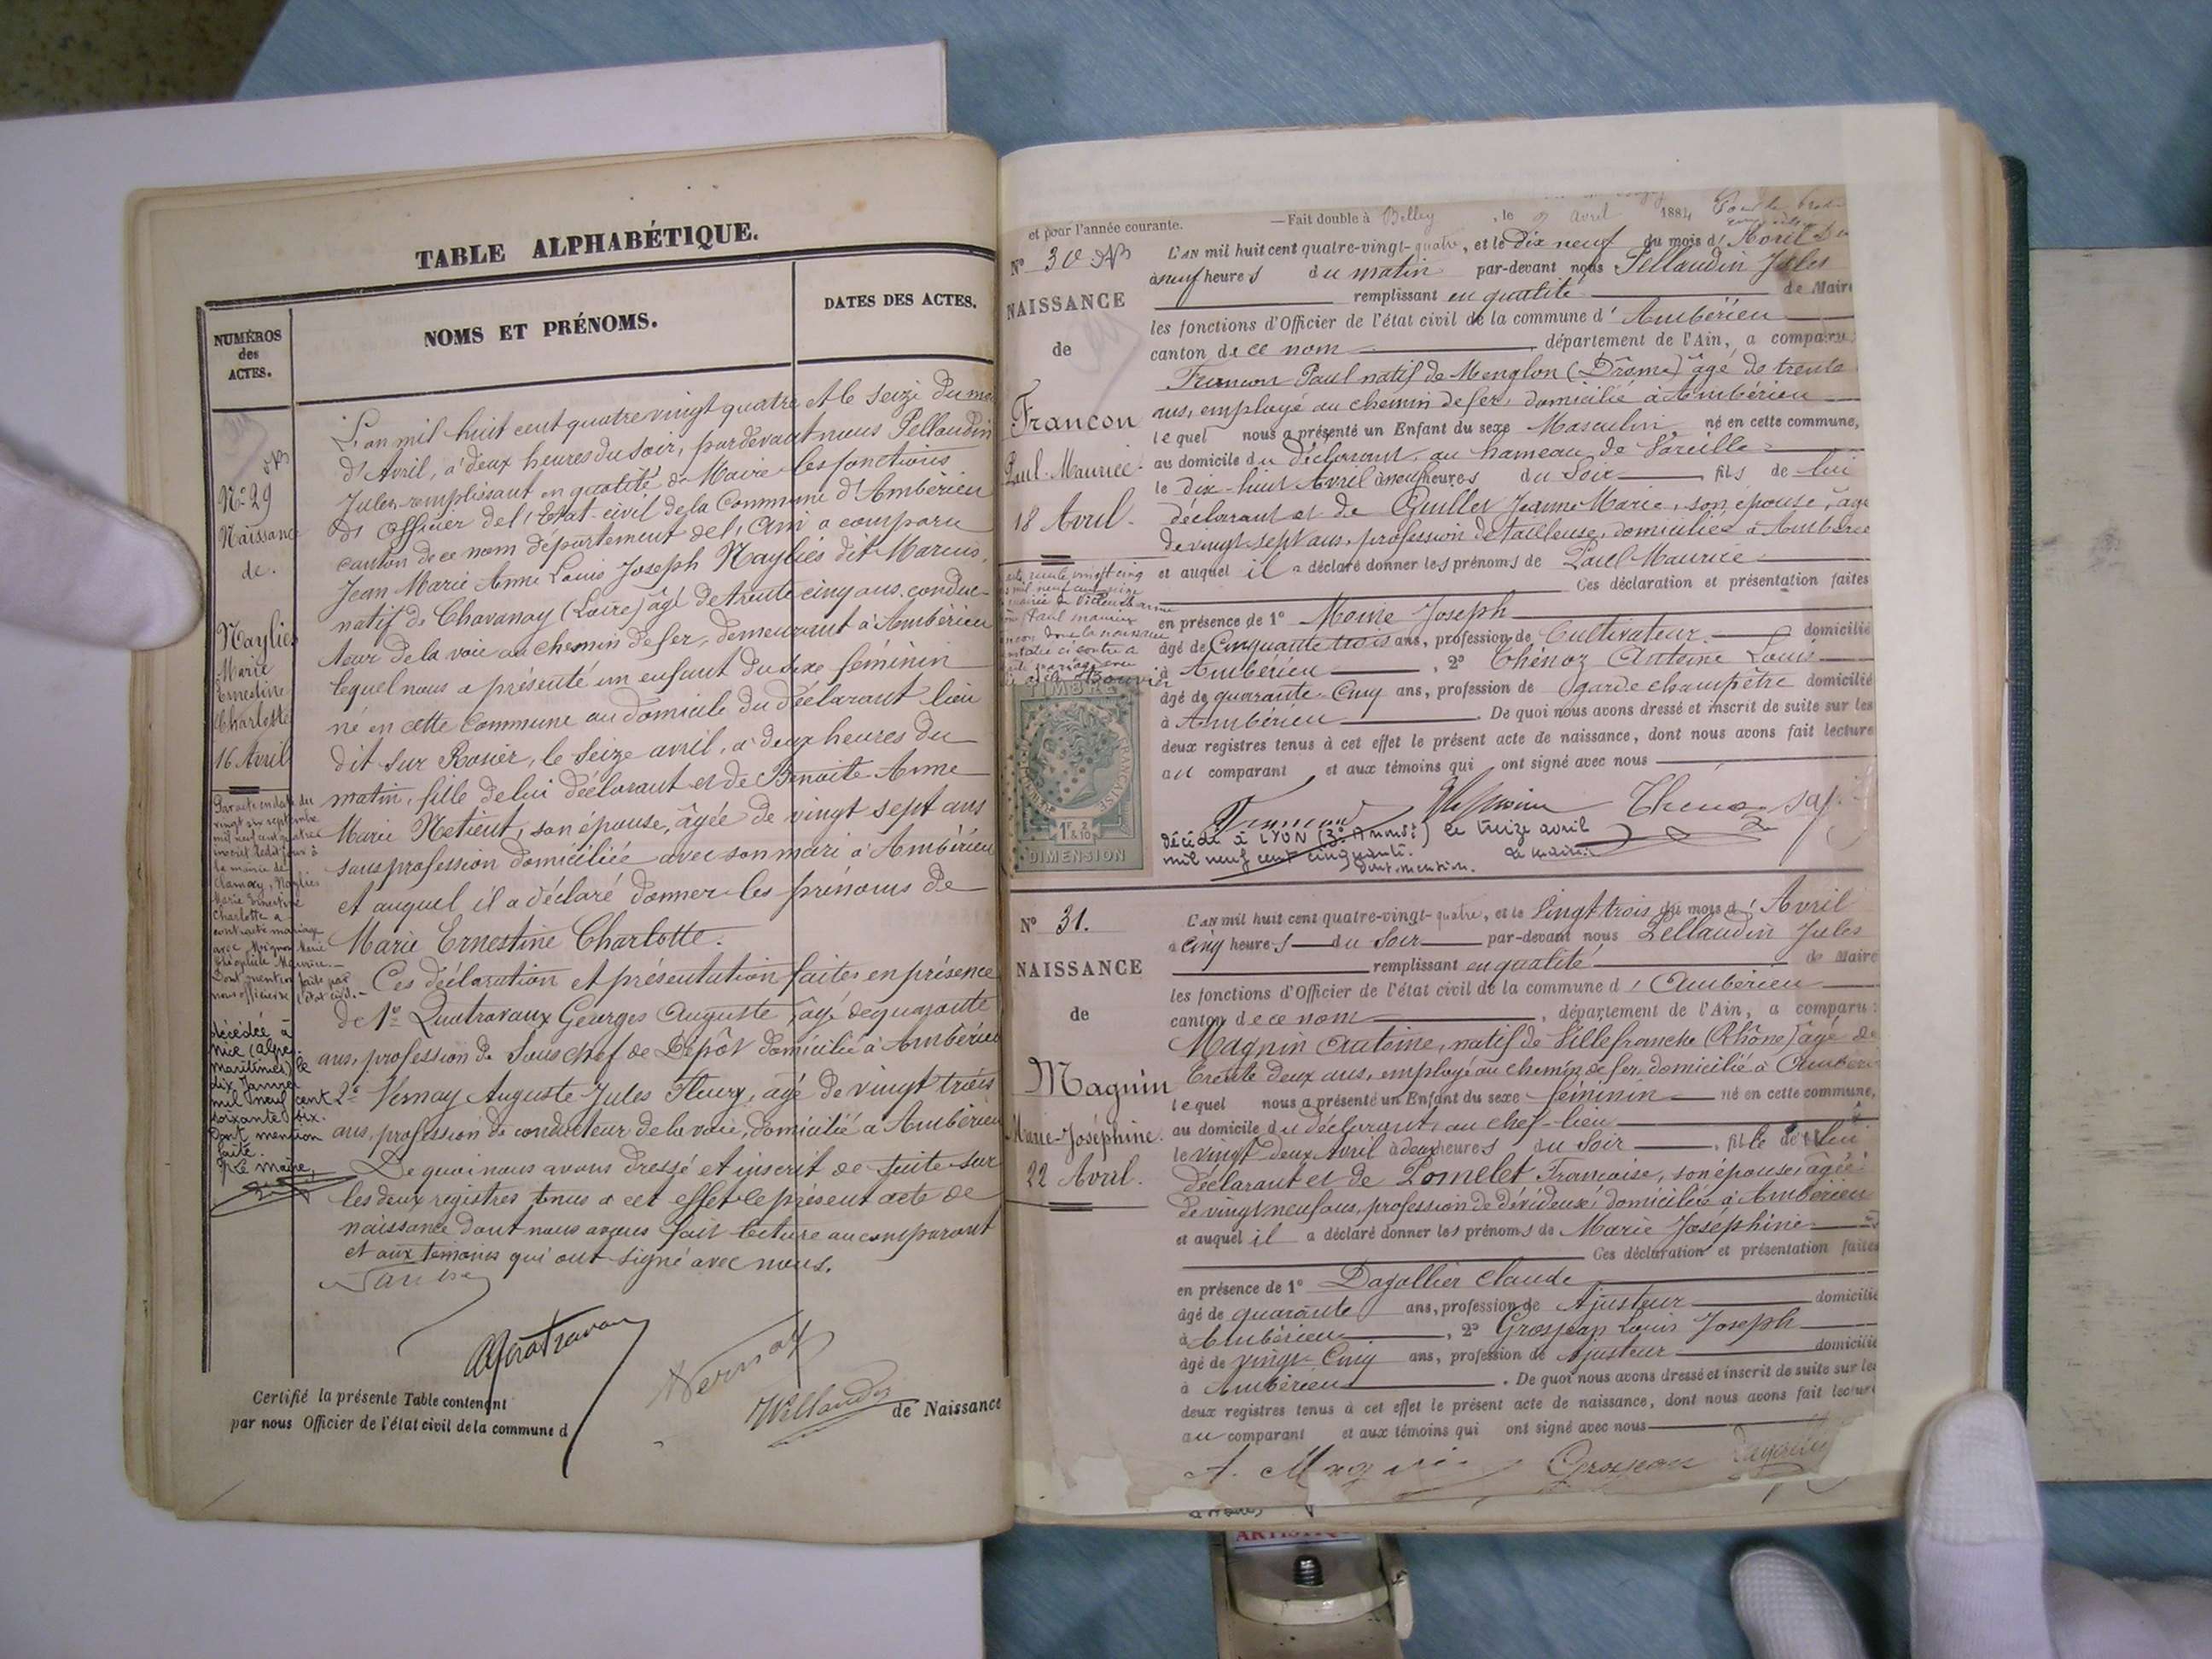 TABLE ALPHABÉTIQUE.
NUMÉROS
des
ACTES.
NOMS ET PRÉNOMS.
DATES DES ACTES.
N° 29
Naissance
de
Naylies
Marie
Ernestine
Charlotte
16 Avril
Par acte en date du
vingt six septembre
mil neuf cent quatre
inscrit ledit jour à
la mairie de
Naylies
Marie Ernestine
Charlotte a
contracté mariage
avec Mignon Marie
Théophile Maurice.
Dont mention faite par
nous officier de l'état civil.
décédée à
Nice (Alpes-
Maritimes) le
dix Janvier
mil neuf cent
soixante dix.
Dont mention
faite.
Le maire,
L'an mil huit cent quatre vingt quatre et le seize du mois
d'Avril, à deux heures du soir, par devant nous Pellaudin
Jules remplissant en qualité de Maire les fonctions
d'Officier de l'Etat-civil de la Commune d'Ambérieu
canton de ce nom département de l'Ain a comparu
Jean Marie Anne Louis Joseph Nayliès dit Marius,
natif de Chavanay (Loire) âgé de trente cinq ans, conduc-
teur de la voie au chemin de fer, demeurant à Ambérieu
lequel nous a présenté un enfant du sexe féminin
né en cette Commune au domicile du déclarant lieu
dit sur Rosier, le seize avril, à deux heures du
matin, fille de lui déclarant et de Benoite Anne
Marie Netient, son épouse, âgée de vingt sept ans
sans profession domiciliée avec son mari à Ambérieu
et auquel il a déclaré donner les prénoms de
Marie Ernestine Charlotte.
Ces déclaration et présentation faites en présence
de 1° Quatravaux Georges Auguste, âgé de quarante
ans, profession de Sous chef de Dépôt domicilié à Ambérieu
2° Vernay Auguste Jules Fleury, âgé de vingt trois
ans, profession de conducteur de la voie, domicilié à Ambérieu
De quoi nous avons dressé et inscrit de suite sur
les deux registres tenus à cet effet le présent acte de
naissance dont nous avons fait lecture au comparant
et aux témoins qui ont signé avec nous.
Certifié la présente Table contenant
de Naissance
par nous Officier de l'état civil de la commune d
et pour l'année courante.
—Fait double à Belley, le 9 avril 1884
N° 30
NAISSANCE
de
Francon
Paul-Maurice
18 Avril.
L'AN mil huit cent quatre-vingt-quatre, et le dix neuf du mois d'Avril
à neuf heures du matin par-devant nous Pellaudin Jules
remplissant en qualité de Maire
les fonctions d'Officier de l'état civil de la commune d'Ambérieu
canton de ce nom, département de l'Ain, a comparu
Francon Paul natif de Menglon (Drôme) âgé de trente
ans, employé au chemin de fer, domicilié à Ambérieu
lequel nous a présenté un Enfant du sexe Masculin né en cette commune,
au domicile du déclarant, au hameau de Vareille
le dix-huit Avril à neuf heures du Soir fils de lui
déclarant et de Guillet Jeanne Marie, son épouse, âgée
de vingt sept ans, profession de tailleuse, domiciliée à Ambérieu
et auquel il a déclaré donner les prénoms de Paul Maurice
Ces déclaration et présentation faites
en présence de 1° Moine Joseph
âgé de Cinquante trois ans, profession de Cultivateur domicilié
à Ambérieu, 2° Thénoz Antoine Louis
âgé de quarante-Cinq ans, profession de garde champêtre domicilié
à Ambérieu. De quoi nous avons dressé et inscrit de suite sur les
deux registres tenus à cet effet le présent acte de naissance, dont nous avons fait lecture
au comparant et aux témoins qui ont signé avec nous
TIMBRE
FRANÇAISE
1F 2/10
&
DIMENSION
Décédé à LYON (3e Arrondt) le treize avril
mil neuf cent cinquante.
dont mention.
Le maire
N° 31.
NAISSANCE
de
Magnin
Marie-Joséphine.
22 Avril.
L'AN mil huit cent quatre-vingt-quatre, et le Vingt trois du mois d'Avril
à Cinq heures du Soir par-devant nous Pellaudin Jules
remplissant en qualité de Maire
les fonctions d'Officier de l'état civil de la commune d'Ambérieu
canton de ce nom, département de l'Ain, a comparu:
Magnin Antoine, natif de Villefranche (Rhône) âgé de
trente deux ans, employé au chemin de fer domicilié à Ambérieu
lequel nous a présenté un Enfant du sexe féminin né en cette commune,
au domicile du déclarant, au chef-lieu
le vingt-deux Avril à deux heures du Soir, fille de lui
déclarant et de Pomelet Françoise, son épouse, âgée
de vingt neuf ans, profession de dévideuse, domiciliée à Ambérieu
et auquel il a déclaré donner les prénoms de Marie Joséphine
Ces déclaration et présentation faites
en présence de 1° Dagallier Claude
âgé de quarante ans, profession de Ajusteur domicilié
à Ambérieu, 2° Grosjean Louis Joseph
âgé de vingt-Cinq ans, profession de Ajusteur domicilié
à Ambérieu. De quoi nous avons dressé et inscrit de suite sur les
deux registres tenus à cet effet le présent acte de naissance, dont nous avons fait lecture
au comparant et aux témoins qui ont signé avec nous
A. Magnin Grosjean Dagallier